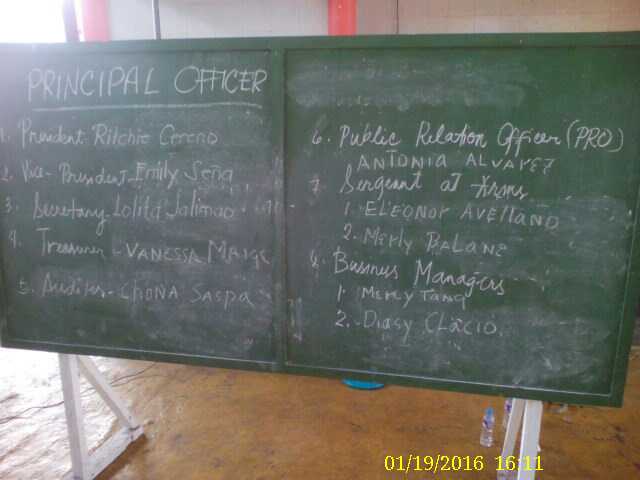 PRINCIPAL OFFICER
1. President - Ritchie Cereno
2. Vice - President - Emily Seña
3. Secretary - Lolita
4. Treasurer - VANESSA
5. Auditor - CHONA SASPA
6. Public Relation Officer (PRO)
ANTONIA ALVAREZ
7. Sergeant at Arms
1. ELEONOR AVELLANO
2. Merly BALANE
Business Managers
1. Mercy Tang
2. Diasy CLACIO.
01/19/2016 16:11